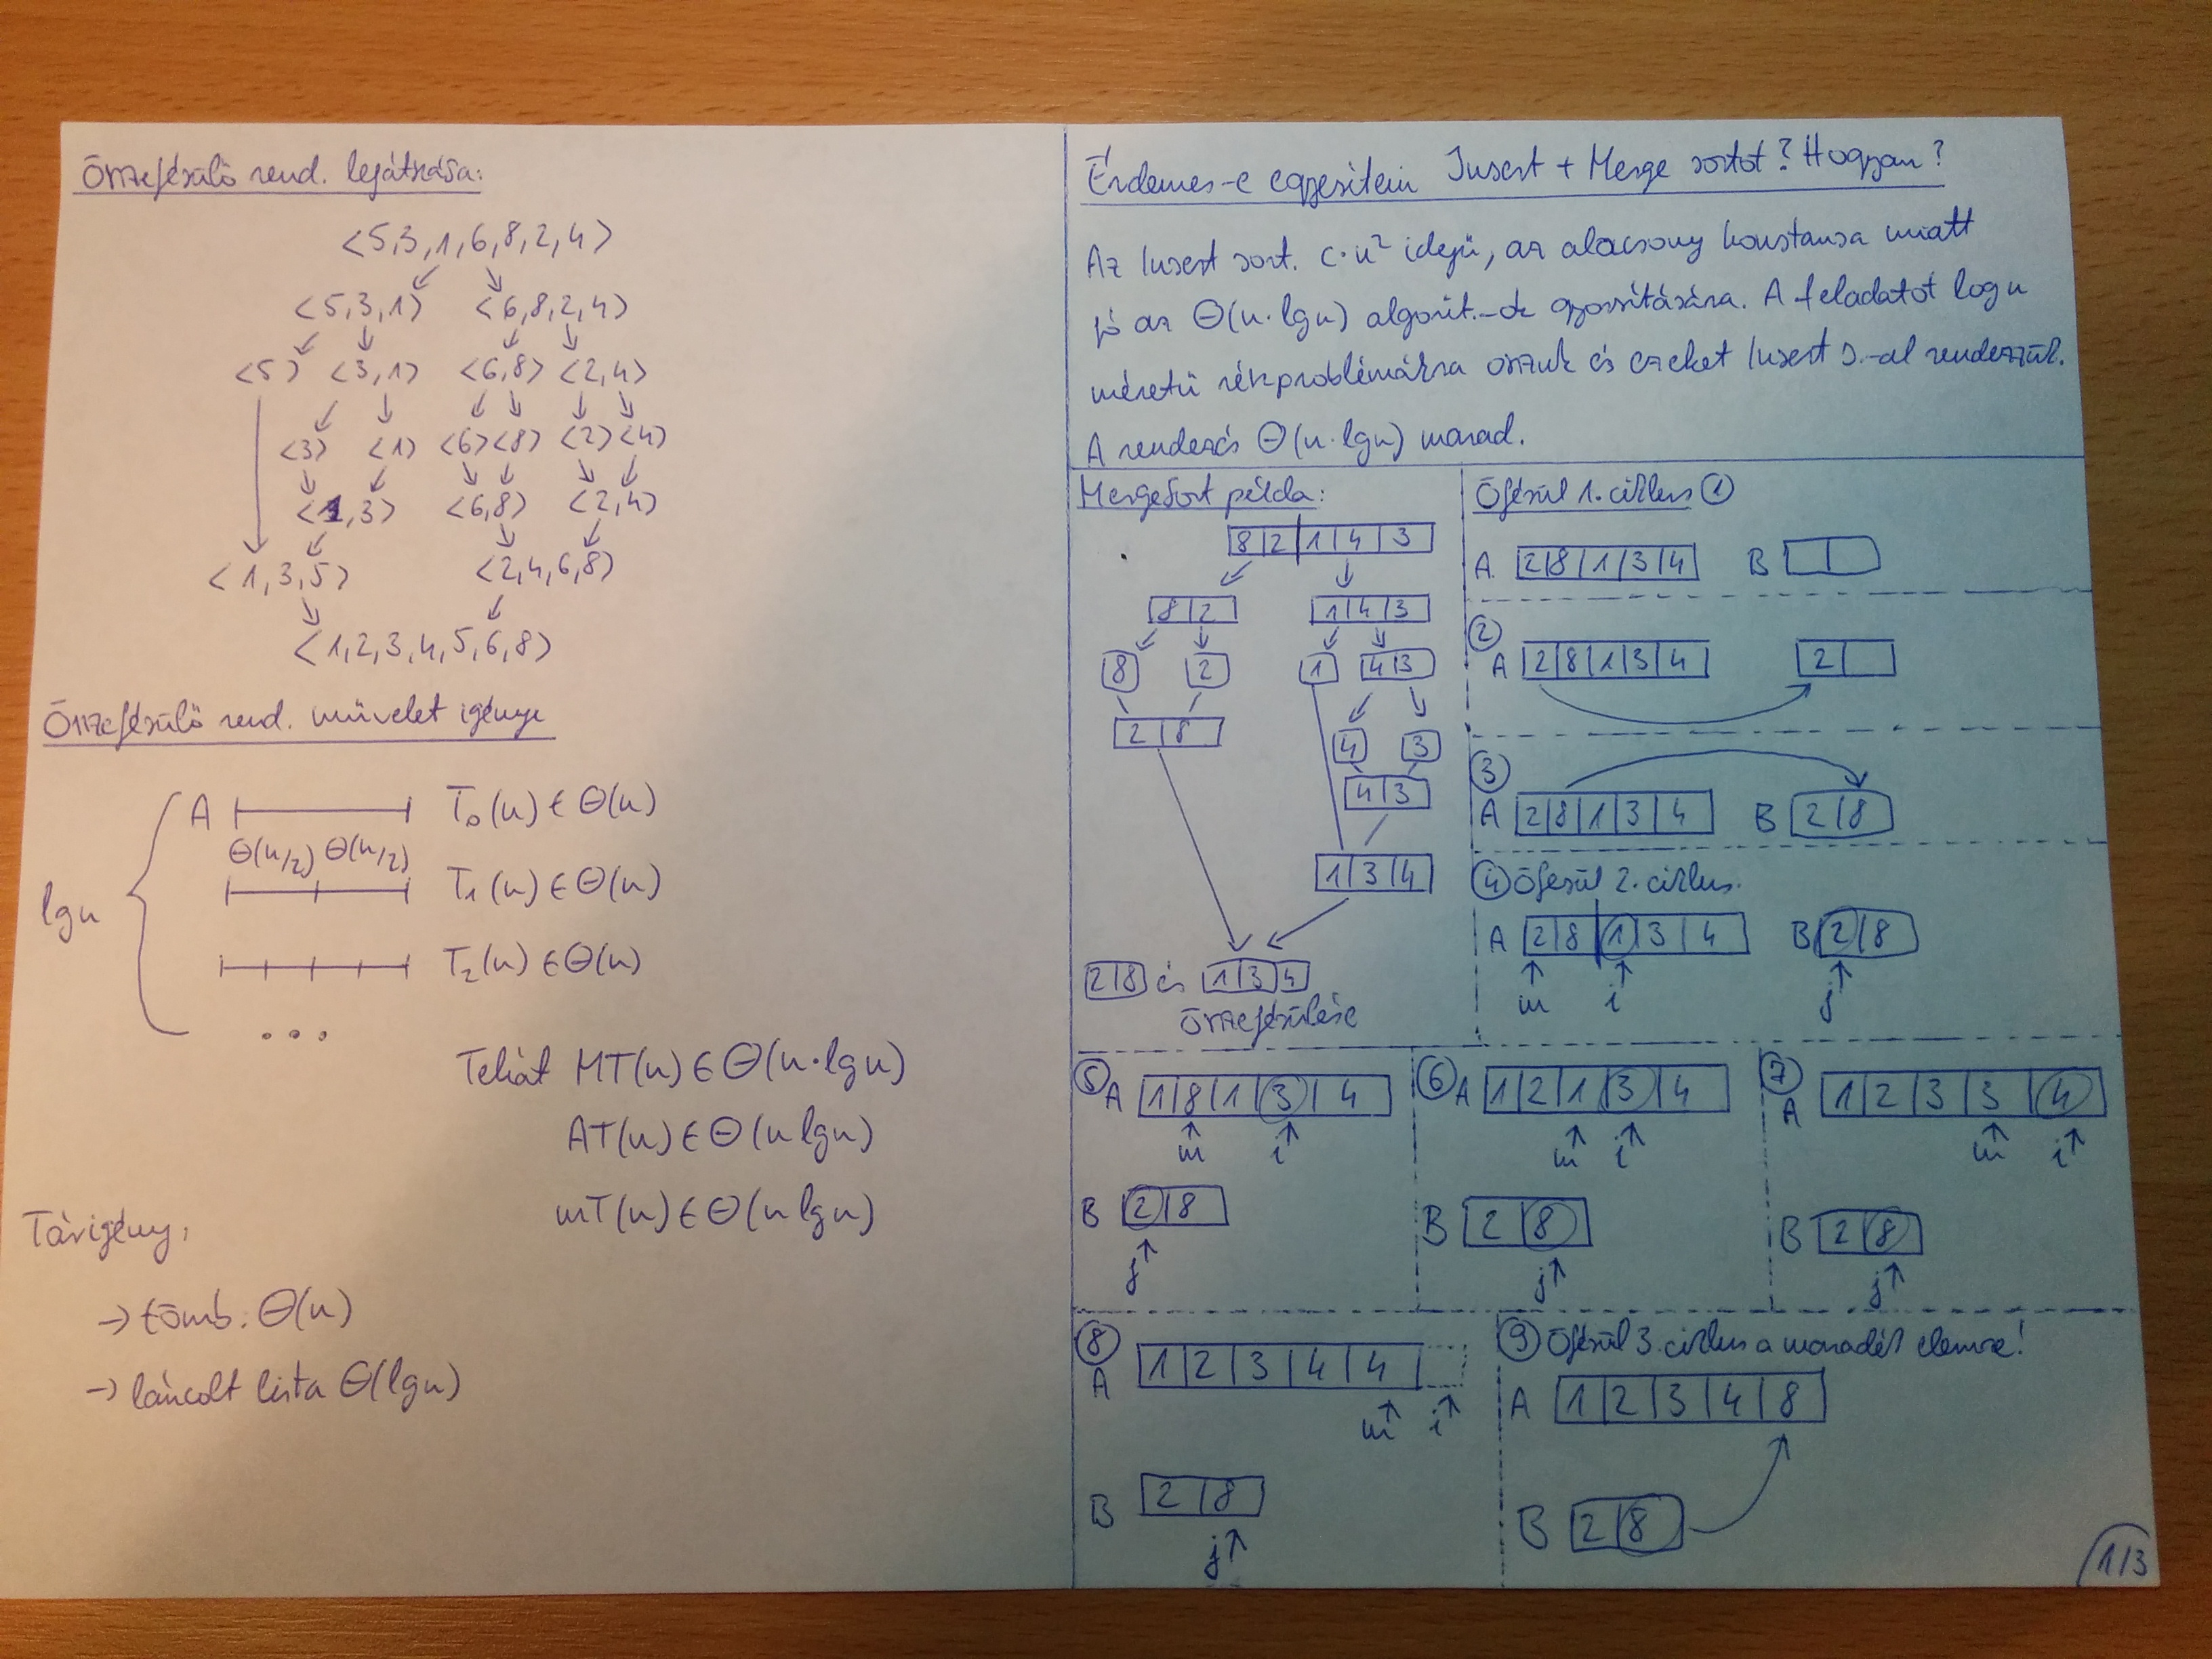 Összefésülő rend. lejátszása:
<5,3,1,6,8,2,4>
<5,3,1> <6,8,2,4>
<5> <3,1> <6,8> <2,4>
<3> <1> <6> <8> <2> <4>
<1,3> <6,8> <2,4>
<1,3,5> <2,4,6,8>
<1,2,3,4,5,6,8>
Összefésülő rend. művelet igénye
lgn
A T₀(n) ∈ Θ(n)
Θ(n/2) Θ(n/2)
T₁(n) ∈ Θ(n)
T₂(n) ∈ Θ(n)
...
Tehát MT(n) ∈ Θ(n·lgn)
AT(n) ∈ Θ(n lgn)
mT(n) ∈ Θ(n lgn)
Tárigény:
→ tömb: Θ(n)
→ láncolt lista Θ(lgn)
Érdemes-e egyesíteni Insert + Merge sortot? Hogyan?
Az Insert sort. c·n² idejű, az alacsony konstansa miatt
jó az Θ(n·lgn) algorit.-ok gyorsítására. A feladatot logn
méretű részproblémákra osztuk és ezeket Insert s.-al rendezzük.
A rendezés Θ(n·lgn) marad.
MergeSort példa:
8|2|1|4|3
8|2 1|4|3
8 2 1 4|3
2|8 4 3
4|3
1|3|4
2|8 és 1|3|4
összefésülése
Öfésül 1. ciklus ①
A 2|8|1|3|4 B
②
A 2|8|1|3|4 2
③
A 2|8|1|3|4 B 2|8
④ Öfésül 2. ciklus.
A 2|8|1|3|4 B 2|8
m i j
⑤ A 1|8|1|3|4
m i
B 2|8
j
⑥ A 1|2|1|3|4
m i
B 2|8
j
⑦ A 1|2|3|3|4
m i
B 2|8
j
⑧
A 1|2|3|4|4
m i
B 2|8
j
⑨ Öfésül 3. ciklus a maradék elemre!
A 1|2|3|4|8
B 2|8
1/3